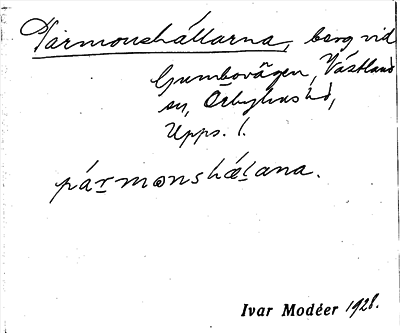 Pärmonshällarna, berg vid
Gumbovägen, Västland
sn, Örbyhus hd,
Upps. l.
pármonshælana.
Ivar Modéer 1928.